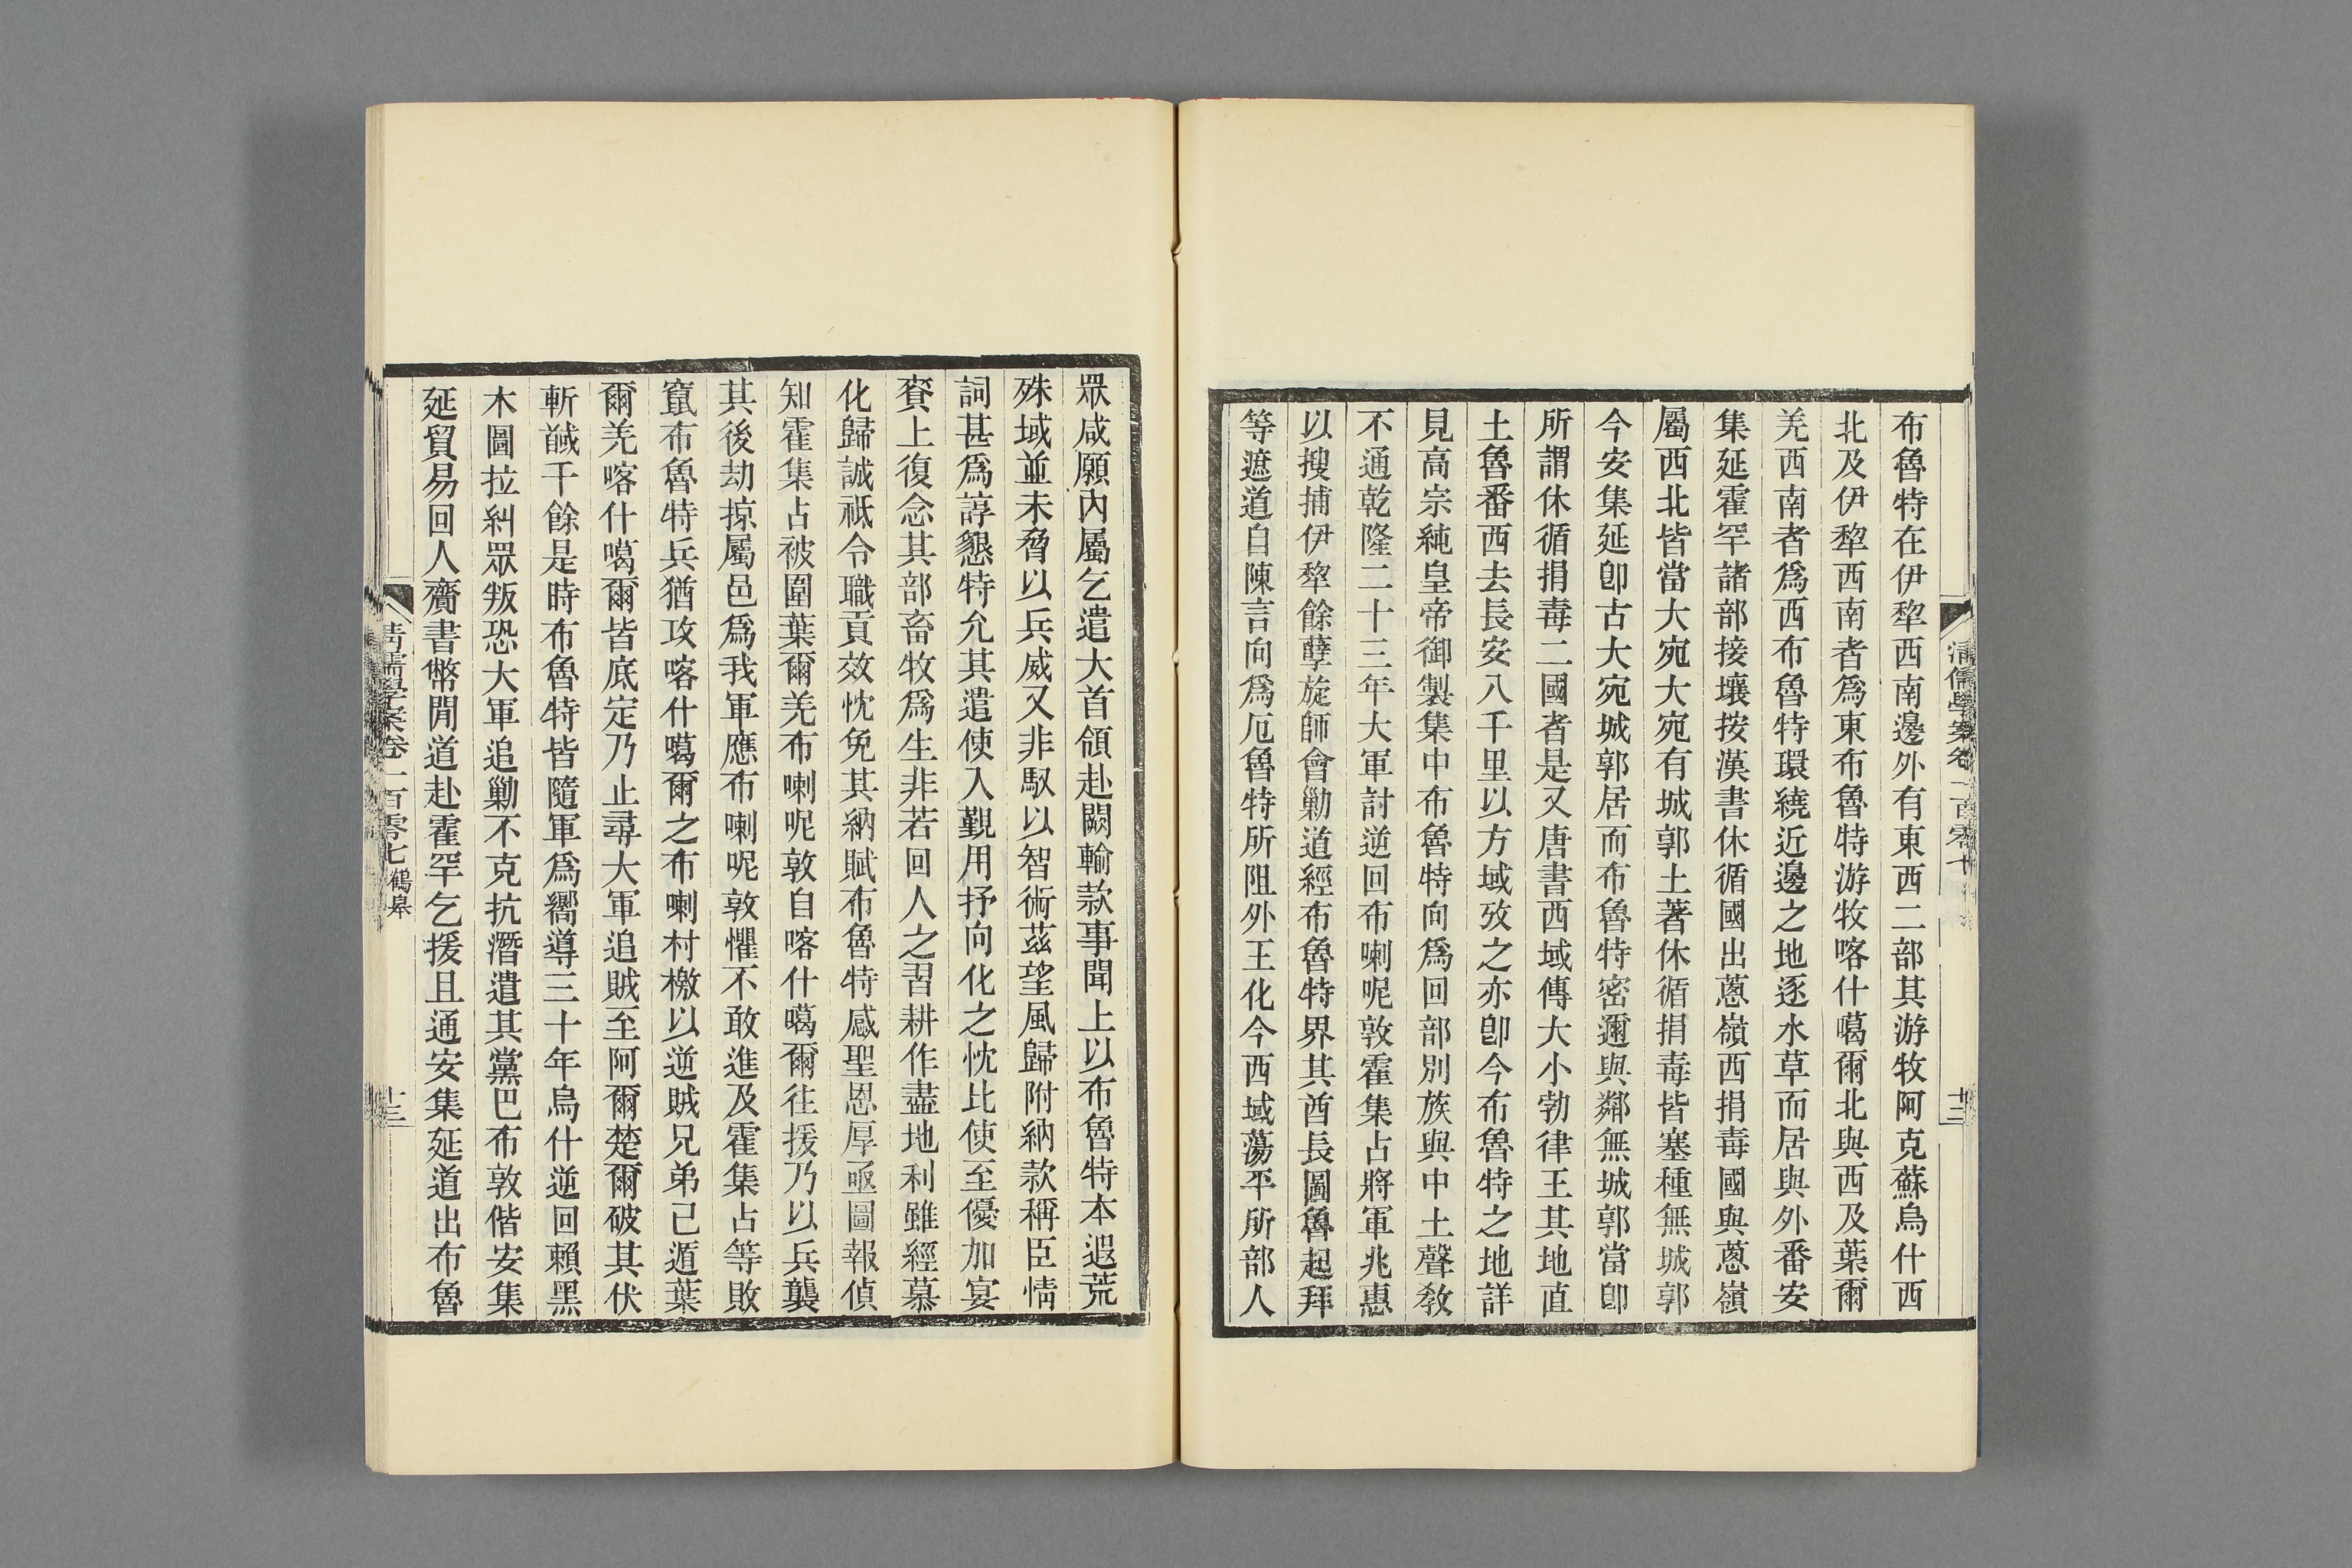 布魯特在伊犂西南邊外有東西二部其游牧阿克蘇烏什西
北及伊犂西南者爲東布魯特游牧喀什噶爾北與西及葉爾
羌西南者爲西布魯特環繞近邊之地逐水草而居與外番安
集延霍罕諸部接壤按漢書休循國出蔥嶺西捐毒國與蔥嶺
屬西北皆當大宛大宛有城郭土著休循捐毒皆塞種無城郭
今安集延卽古大宛城郭居而布魯特密邇與鄰無城郭當卽
所謂休循捐毒二國者是又唐書西域傳大小勃律王其地直
土魯番西去長安八千里以方域攷之亦卽今布魯特之地詳
見高宗純皇帝御製集中布魯特向爲回部別族與中土聲教
不通乾隆二十三年大軍討逆回布喇呢敦霍集占將軍兆惠
以搜捕伊犂餘孽旋師會勦道經布魯特界其酋長圖魯起拜
等遮道自陳言向爲厄魯特所阻外王化今西域蕩平所部人
眾咸願內屬乞遣大首領赴闕輸款事聞上以布魯特本遐荒
殊域並未脅以兵威又非馭以智術茲望風歸附納款稱臣情
詞甚爲諄懇特允其遣使入覲用抒向化之忱比使至優加宴
賚上復念其部畜牧爲生非若回人之習耕作盡地利雖經慕
化歸誠祗令職貢效忱免其納賦布魯特感聖恩厚亟圖報偵
知霍集占被圍葉爾羌布喇呢敦自喀什噶爾往援乃以兵襲
其後劫掠屬邑爲我軍應布喇呢敦懼不敢進及霍集占等敗
竄布魯特兵猶攻喀什噶爾之布喇村檄以逆賊兄弟已遁葉
爾羌喀什噶爾皆底定乃止尋大軍追賊至阿爾楚爾破其伏
斬馘千餘是時布魯特皆隨軍爲嚮導三十年烏什逆回賴黑
木圖拉糾眾叛恐大軍追勦不克抗潛遣其黨巴布敦偕安集
延貿易回人齎書幣閒道赴霍罕乞援且通安集延道出布魯
清儒學案卷一百零七 鶴皋
十三